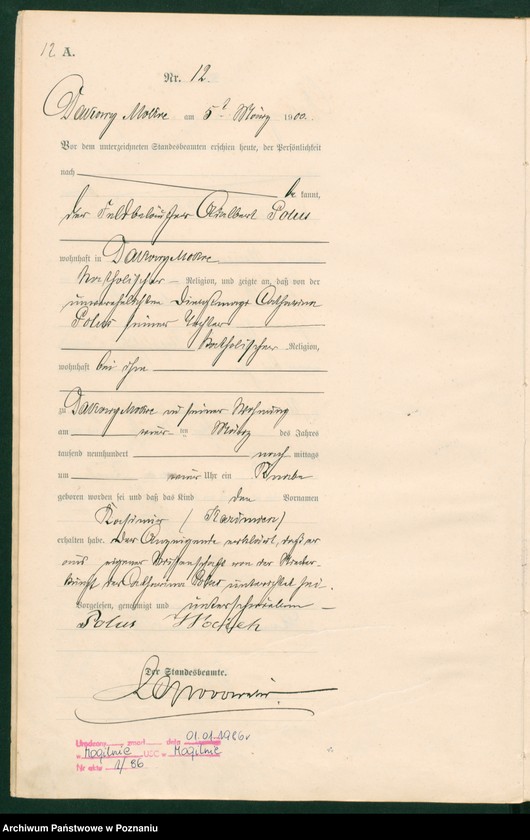 12 A.
Nr. 12.
Dabrowy Mokre am 5ᵗ März 1900.
Vor dem unterzeichneten Standesbeamten erschien heute, der Persönlichkeit
nach be kannt,
der Adalbert Polus
wohnhaft in
katholischer Religion, und zeigte an, daß von der
unverehelichten Dienstmagd Catharina
Polus seiner Tochter
katholischer Religion,
wohnhaft bei ihm
zu in seiner Wohnung
am ten März des Jahres
tausend neunhundert nach mittags
um Uhr ein Knabe
geboren worden sei und daß das Kind den Vornamen
Kasimir
erhalten habe. Der Anzeigende erklärt, daß er
aus eigener Wissenschaft von der Nieder-
kunft der Catharina Polus unterrichtet sei.
Vorgelesen, genehmigt und unterschrieben
Polus
Der Standesbeamte.
data 01.01.1986r
w Mogilnie USC w Mogilnie
Nr aktu 1/86
Archiwum Państwowe w Poznaniu